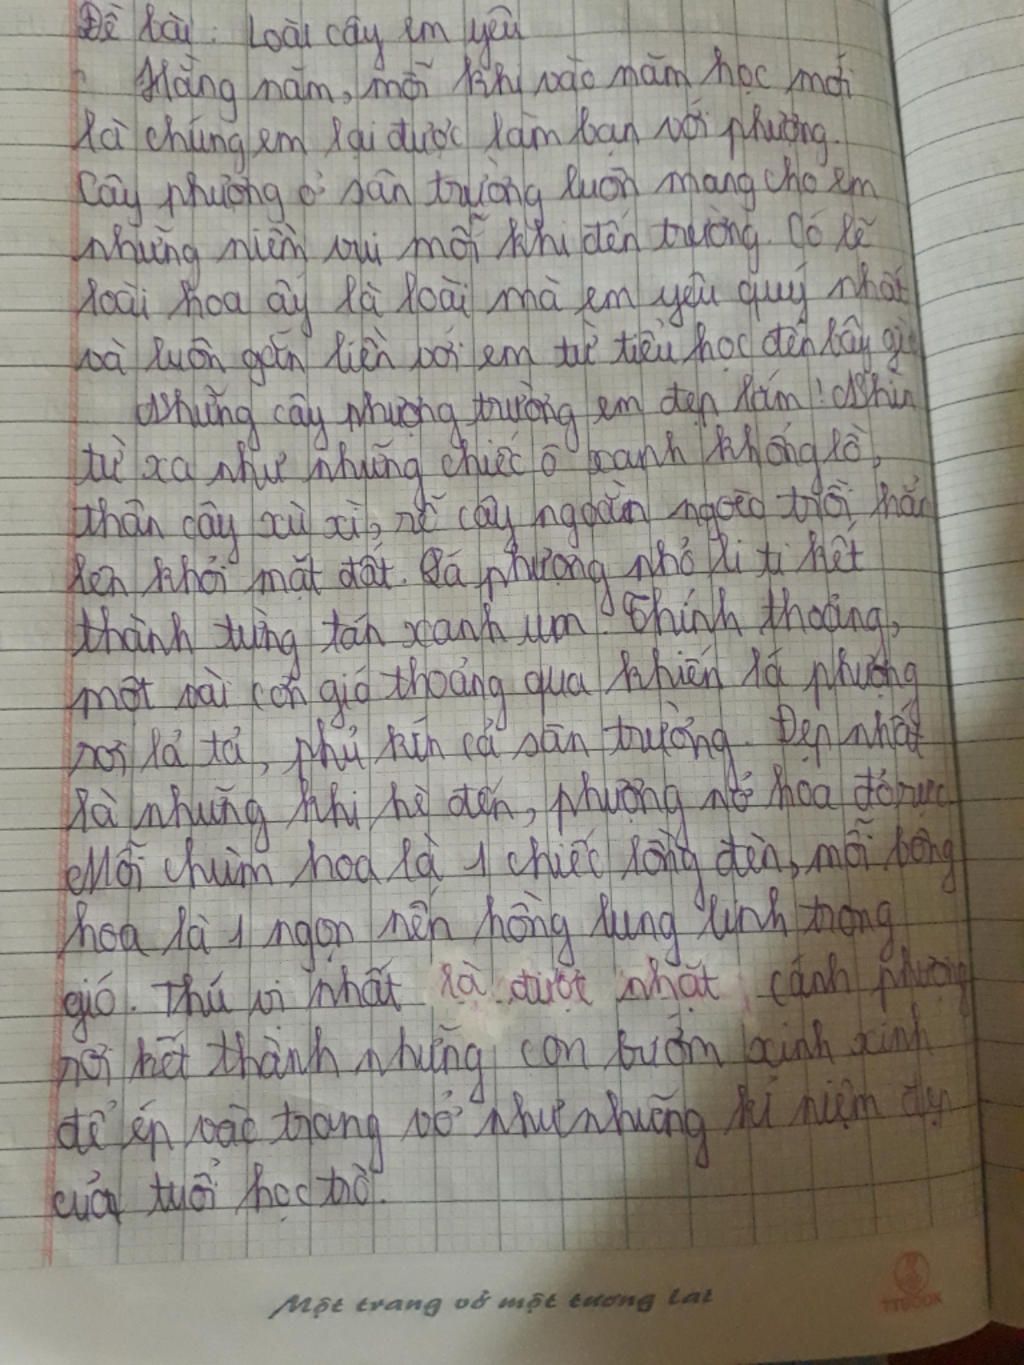 Đề bài: Loài cây em yêu
Hàng năm, mỗi khi vào năm học mới
là chúng em lại được làm bạn với phượng.
Cây phượng ở sân trường luôn mang cho em
những niềm vui mỗi khi đến trường. Có lẽ
loài hoa ấy là loài mà em yêu quý nhất
và luôn gắn liền với em từ tiểu học đến bây giờ
Những cây phượng trường em đẹp lắm! Nhìn
từ xa như những chiếc ô xanh khổng lồ,
thân cây xù xì, rễ cây ngoằn ngoèo trồi hẳn
lên khỏi mặt đất. Lá phượng nhỏ li ti kết
thành từng tán xanh um. Thỉnh thoảng,
một vài cơn gió thoảng qua khiến lá phượng
rơi lả tả, phủ kín cả sân trường. Đẹp nhất
là những khi hè đến, phượng nở hoa đỏ rực.
Mỗi chùm hoa là 1 chiếc lồng đèn, mỗi bông
hoa là 1 ngọn nến hồng lung linh trong
gió. Thú vị nhất là được nhặt cánh phượng
rơi kết thành những con bướm xinh xinh
để ép vào trang vở như những kỉ niệm đẹp
của tuổi học trò.
Một trang vở một tương lai
TTBOOK